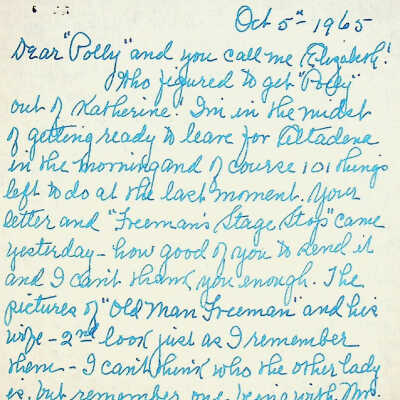 Oct 5th 1965
Dear "Polly" and you call me Elizabeth!
Who figured to get "Polly"
out of Katherine. I'm in the midst
of getting ready to leave for Altadena
in the morning and of course 101 things
left to do at the last moment. Your
letter and "Freeman's Stage Stop" came
yesterday - how good of you to send it
and I can't thank you enough. The
pictures of "Old Man Freeman" and his
wife - 2nd look just as I remember
them - I can't think who the other lady
is, but remember one being with Mrs.